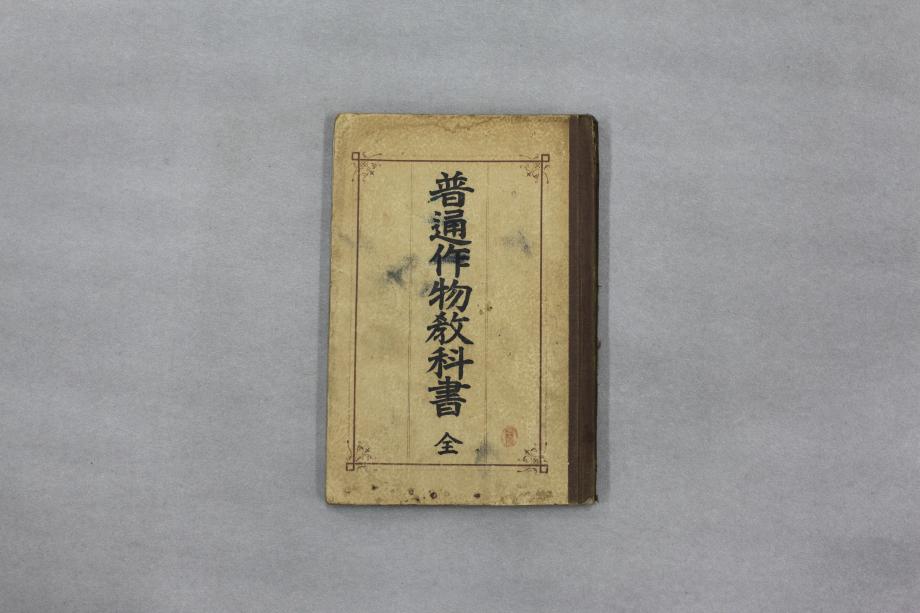 普通作物教科書 全